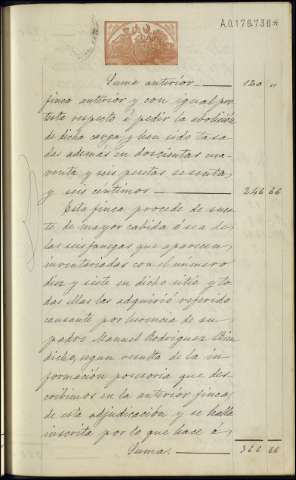 A.0.176.736*
Suma anterior 120 "
finca anterior y con igual pro-
testa respecto á pedir la abolicion
de dicha carga, y han sido tasa
das además en doscientas cua-
renta y seis pesetas sesenta
y seis centimos 246 66
Esta finca procede de suer-
te de mayor cabida ó sea de
las seis fanegas que aparecen
inventariadas con el número
diez y siete en dicho sitio y to-
das ellas las adquirió referido
causante por herencia de su
padre Manuel Rodriguez
dicho, segun resulta de la in-
formacion posesoria que des-
cribimos en la anterior finca
de esta adjudicacion y se halla
inscrita por lo que hace á
Suma 366 66